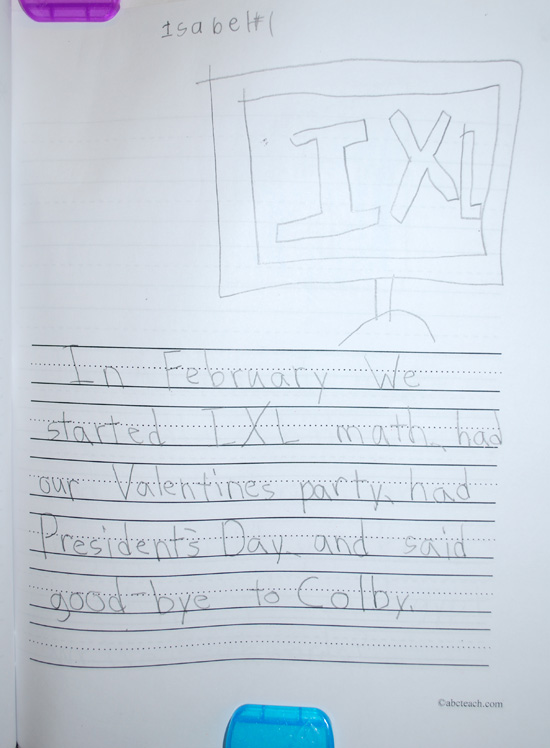 Isabel#1
IXL
In February We
started IXL math, had
our Valentine's party, had
President's Day, and said
good-bye to Colby.
©abcteach.com